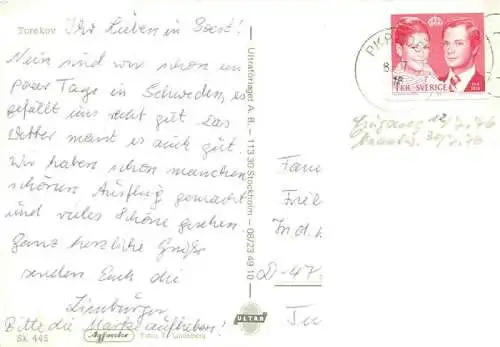 Torekov
Ihr Lieben in Soest!
Nein sind wir schon ein
paar Tage in Schweden, es
gefällt uns recht gut. Das
Wetter meint es auch gut
Wir haben schon manchen
schönen Ausflug gemacht
und vieles Schöne gesehen.
Ganz herzliche Grüße
senden Euch die
Limburger
Bitte die Marke aufheben!
Sk 445
Foto:
Ultraförlaget A. B. – 113 30 Stockholm – 08/23 49 10
ULTRA
PKP
8
1 KR SVERIGE
Fam
In d.
D-47